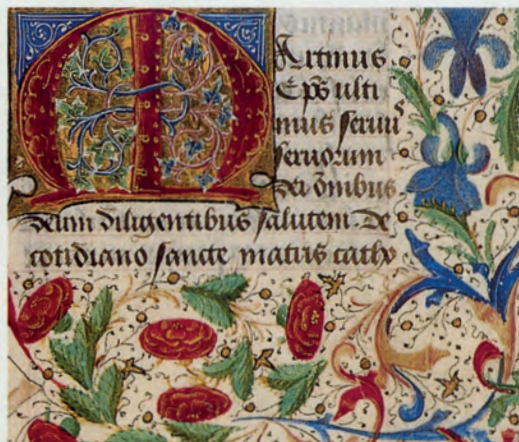 Martinus
Ep̄s ulti
mus seruꝰ
seruorum
dei om̄ibus
deum diligentibus salutem. De
cotidiano sancte matris catho